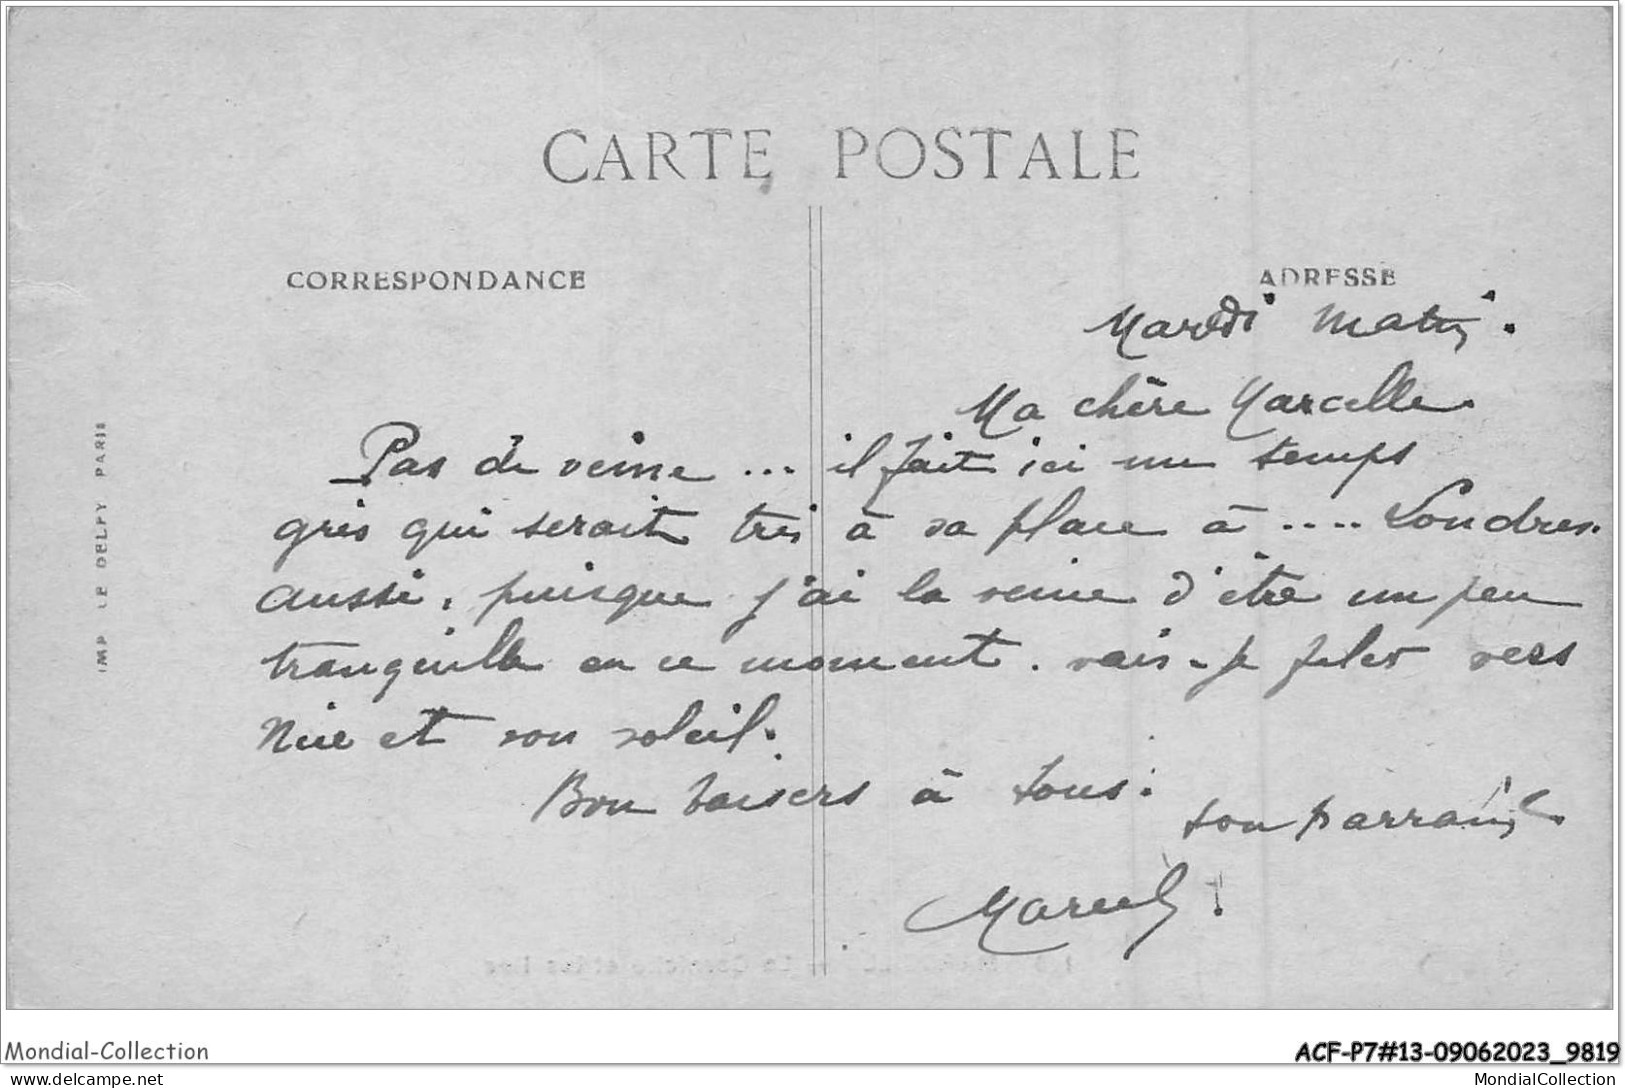 CARTE POSTALE
CORRESPONDANCE
ADRESSE
Mardi Matin.
Ma chère Marcelle.
Pas de veine ... il fait ici un temps
gris qui serait très à sa place à .... Londres.
aussi, puisque j'ai la veine d'être un peu
tranquille en ce moment. vais-je filer vers
Nice et son soleil.
Bon baisers à tous.
ton parrain.
Marcel.
IMP. LE DELEY PARIS
Mondial-Collection
ACF-P7#13-09062023_9819
www.delcampe.net
MondialCollection